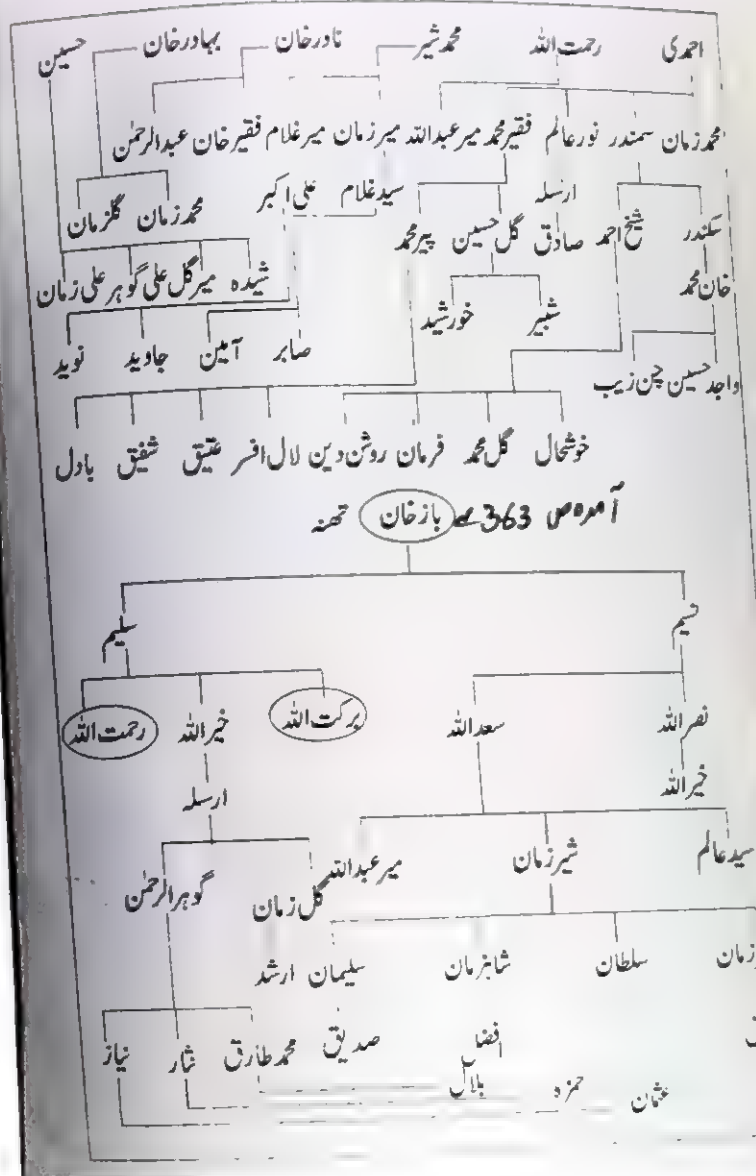 احمدی رحمت اللہ محمد شیر نادر خان بہادر خان حسین
محمد زمان سمندر نور عالم فقیر محمد میر عبداللہ میر زمان میر غلام فقیر خان عبدالرحمٰن
ارسلہ سید غلام علی اکبر محمد زمان گلزمان
سکندر شیخ احمد صادق گل حسین پیر محمد
خان محمد شبیر خورشید شیدہ میر گل علی گوہر علی زمان
واجد حسین چن زیب صابر آمین جاوید نوید
خوشحال گل محمد فرمان روشن دین لال افسر عتیق شفیق بادل
آمدہ ص 363 سے باز خان تھنہ
نسیم سلیم
نصر اللہ سعد اللہ برکت اللہ خیر اللہ رحمت اللہ
خیر اللہ ارسلہ
سید عالم شیر زمان میر عبداللہ گل زمان گوہر الرحمٰن
زمان سلطان شاہزمان سلیمان ارشد
افضل صدیق محمد طارق نثار نیاز
عثمان حمزہ بلال